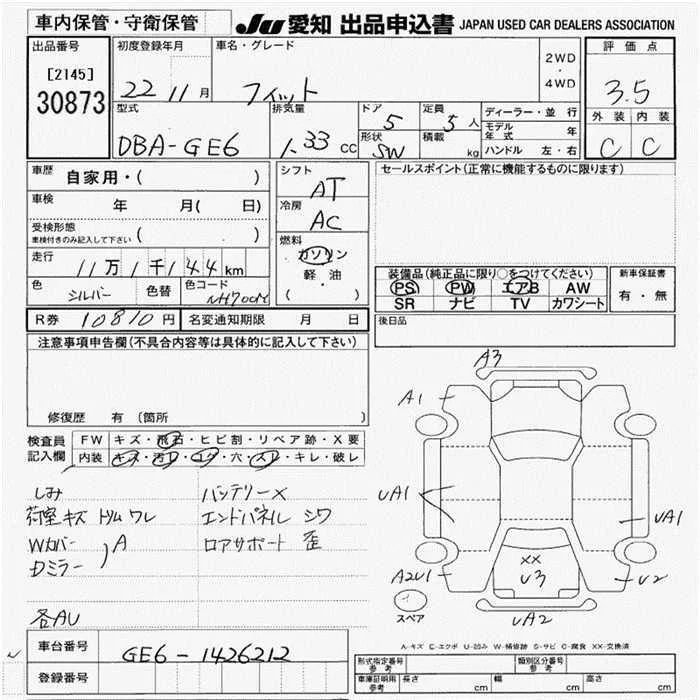 車内保管・守衛保管
JU 愛知 出品申込書 JAPAN USED CAR DEALERS ASSOCIATION
出品番号
[2145]
30873
初度登録年月
22 11 月
車名・グレード
フィット
2WD
・
4WD
評価点
3.5
外装 内装
C C
型式
DBA-GE6
排気量
1.33 CC
ドア
5
定員
5 人
形状
SW
積載
kg
ディーラー・並行
モデル年式 年
ハンドル 左・右
車歴
自家用・( )
車検
年 月( 日)
受検形態
車検付きのみ記入して下さい ( )
走行
11万1千144 km
色
シルバー
色替
色コード
NH700M
R券 10810 円
名変通知期限 月 日
シフト
AT
冷房
AC
燃料
ガソリン
軽・油
( )
セールスポイント(正常に機能するものに限ります)
装備品(純正品に限り○をつけてください)
PS PW エアB AW
SR ナビ TV カワシート
新車保証書
有・無
後日品
注意事項申告欄(不具合内容等は具体的に記入して下さい)
修復歴 有 (箇所 )
検査員
記入欄
FW キズ・飛石・ヒビ割・リペア跡・X要
内装 キズ・汚レ・コゲ・穴・スレ・キレ・破レ
しみ
荷室キズ トリム ワレ
Wカバー
Dミラー
A
各AU
バッテリーX
エンドパネル シワ
ロアサポート 歪
A3
A1
UA1
UA1
A2U1
XX
U3
U2
UA2
スペア
A-キズ E-エクボ U-凹み W-補修跡 S-サビ C-腐食 XX-交換済
車台番号
GE6-1426212
登録番号
型式指定番号
参考
類別区分番号
参考
車庫証明用
参考
長さ cm
幅 cm
高さ cm